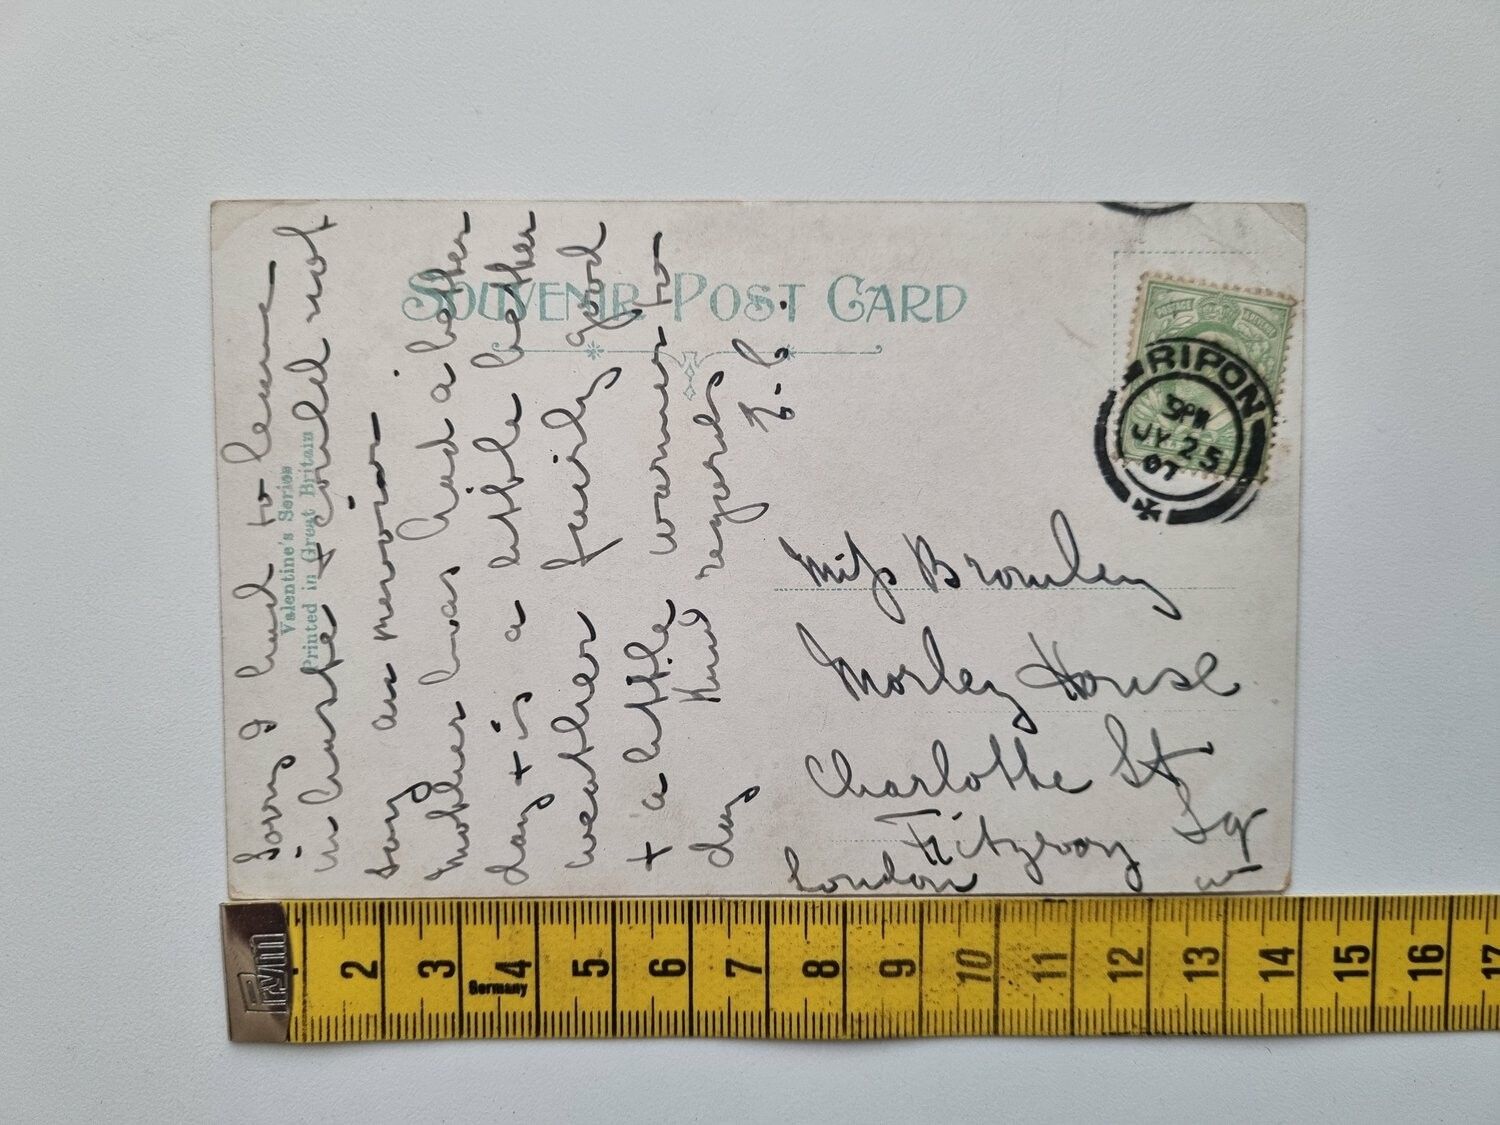 SOUVENIR POST CARD
Valentine's Series
Printed in Great Britain
RIPON
JY 25
07
Sorry I had to leave
in haste & could not
say au revoir
Mother has had a better
day & is a little better
weather fairly good
& a little warmer to
day Kind regards
Miss Bromley
Morley House
Charlotte St
Fitzroy Sq
London W
Prym
Germany
2 3 4 5 6 7 8 9 10 11 12 13 14 15 16 17